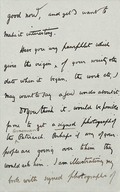 good now, and yet I want to
make it interesting.
Have you any pamphlet which
gives the origin, of your society, the
date when it began, the work etc, I
may want to say a few words about it
Do you think it would be possible
for me to get a signed photograph of
the Patriarch Perhaps if any of your
people are going over there they
would ask him. I am illustrating my
book with signed photographs of